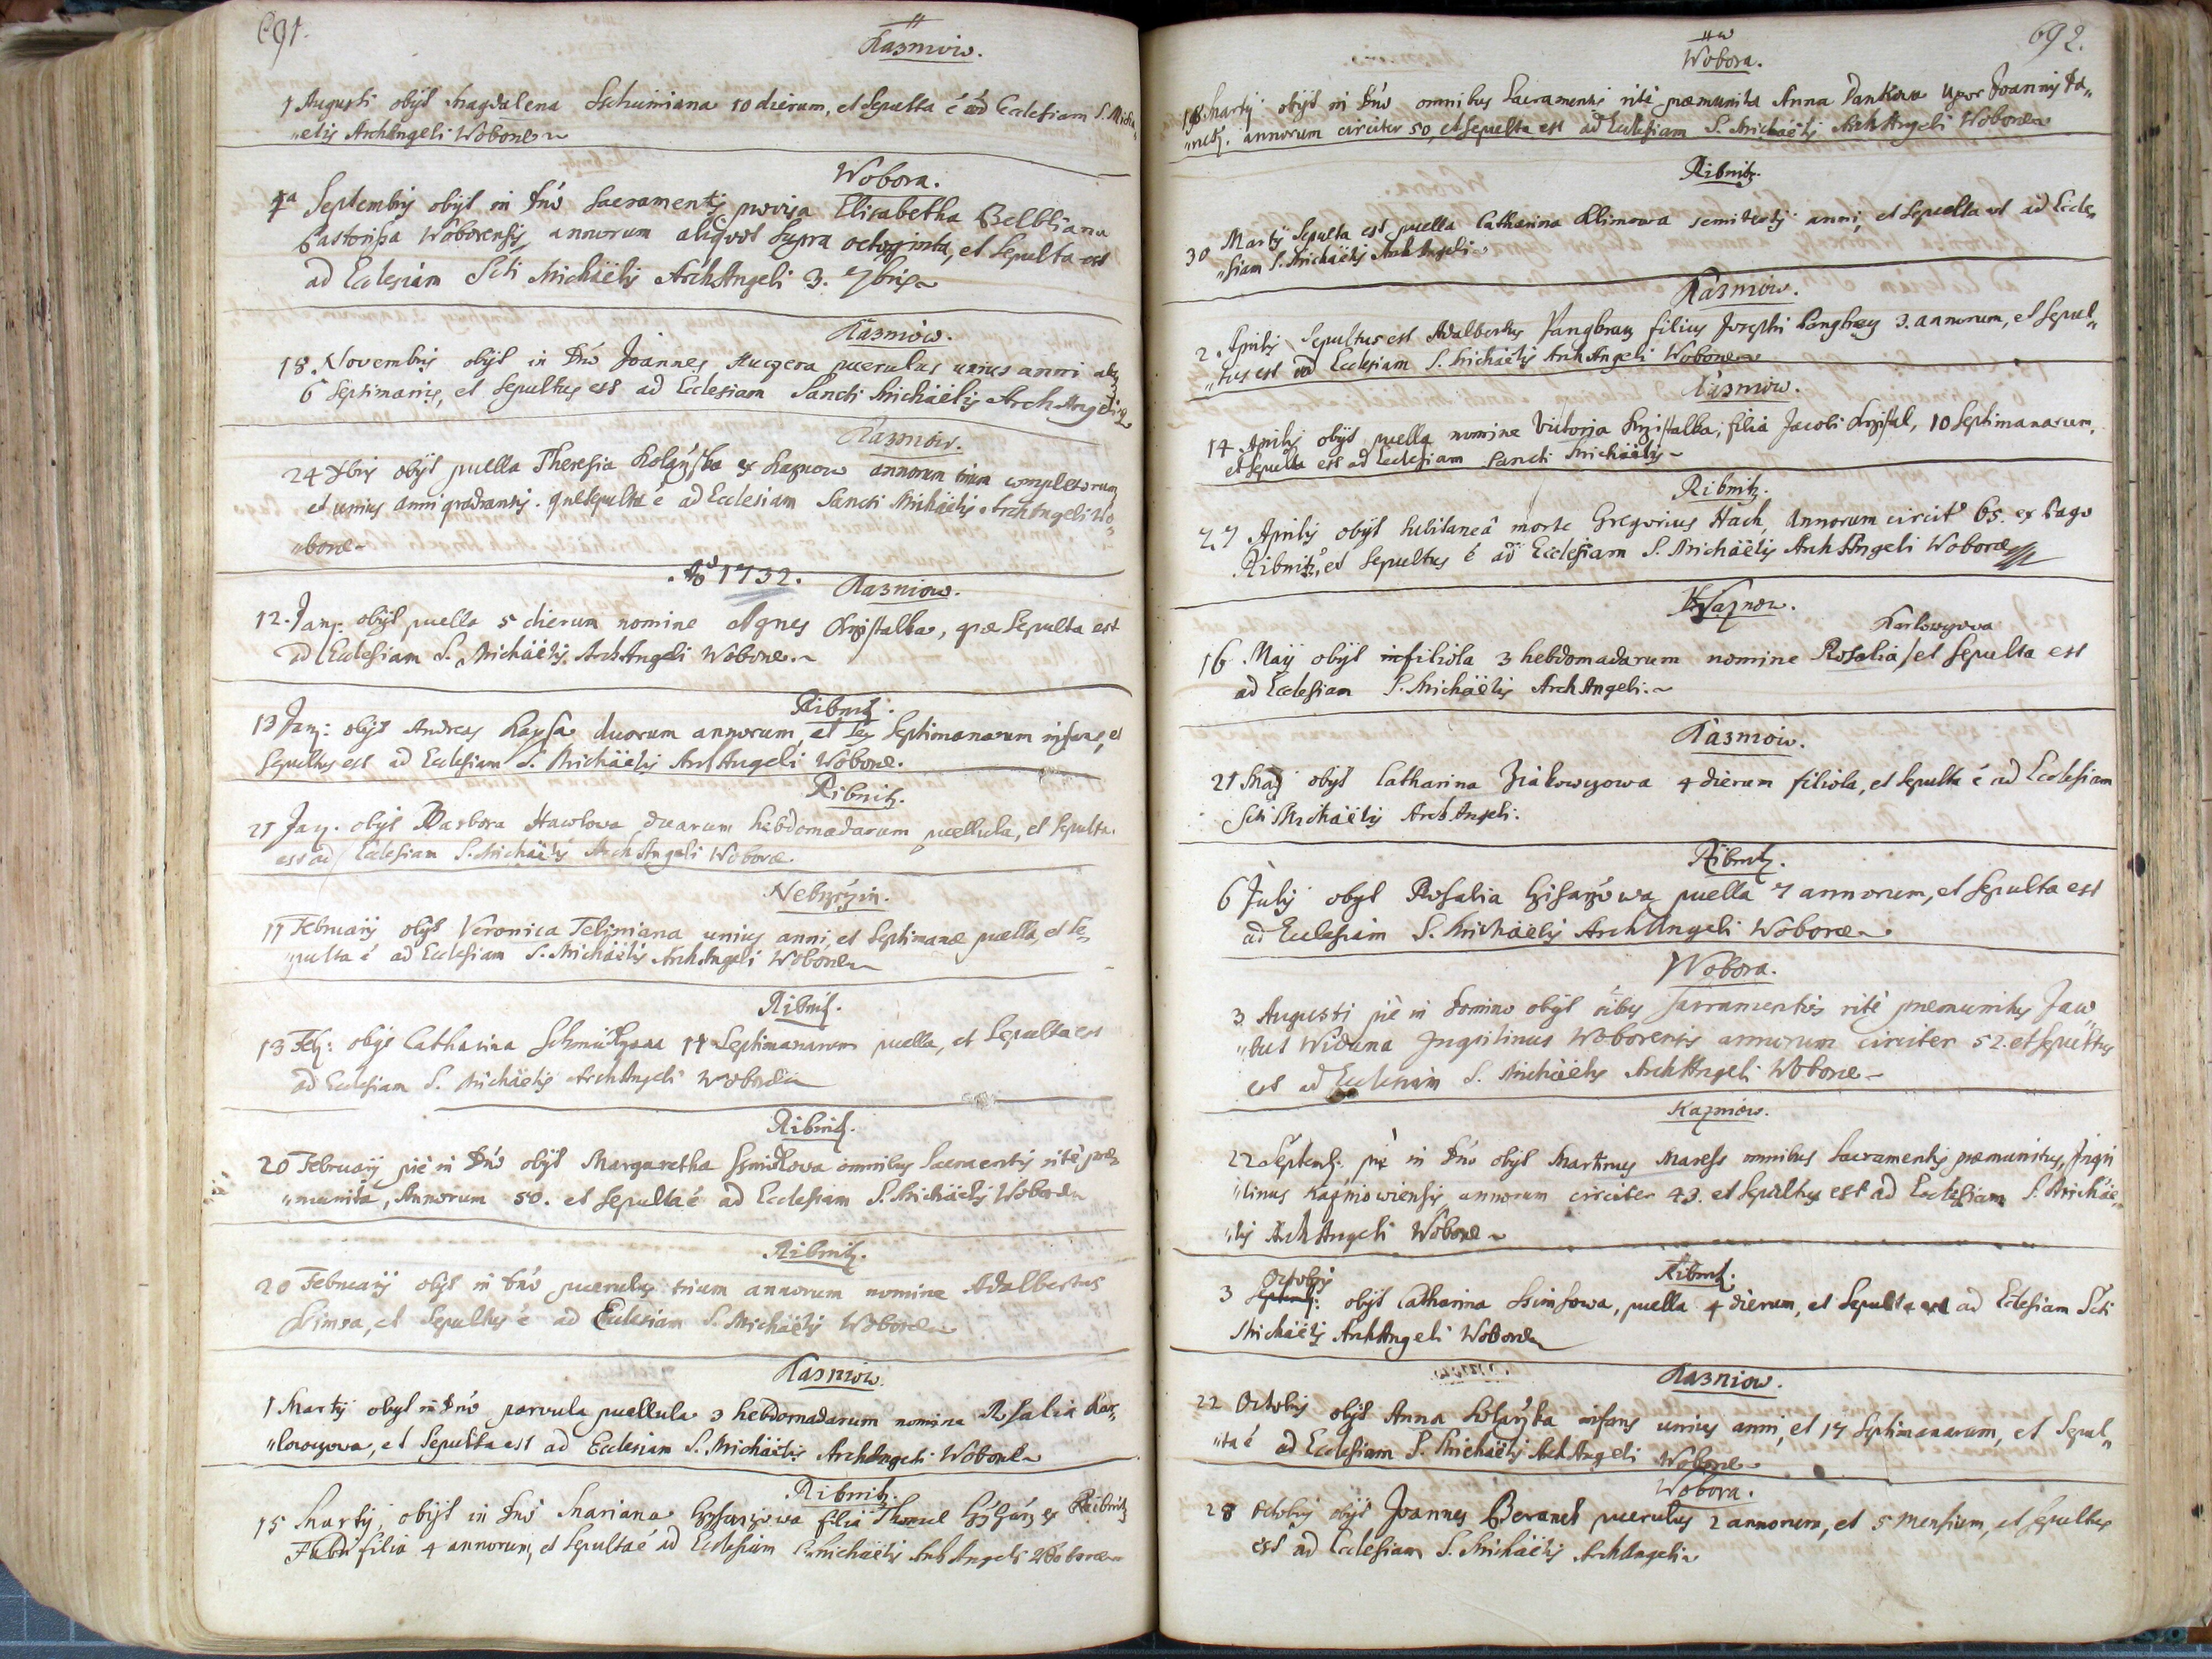 691.
Kazniow.
1 Augusti obijt Magdalena Sschuiniana 10 dierum, et Sepulta é ad Ecclesiam S. Micha„
„elis ArchAngeli Woboræ
Wobora.
4a Septembris obijt in Dno Sacramentis provisa Elisabetha
Pastorissa Woborensis, annorum aliquot supra octoginta, et Sepulta est
ad Eclesiam Scti Michäelis ArchAngeli 3. 7bris
Kazniow.
18. Novembris obijt in Dno Joannes puerulus unius anni
6 Septimanis, et Sepultus est ad Ecclesiam Sancti Michäelis ArchAngeli
Kazniow.
24 Xbris obijt puella Theresia ex Kaznow annorum trium completorum
et unius anni quadrantis. quæ sepulta é ad Ecclesiam Sancti Michäelis ArchAngeli Wo„
„boræ
Ao 1732.
Kazniow.
12. Janj: obijt puella 5 dierum nomine Agnes Krzistalka, quæ Sepulta est
ad Ecclesiam S. Michäelis ArchAngeli Woboræ.
Ribnitz.
13 Janj: obijt Andreas Kapsa duorum annorum, et sex Septimanarum infans, et
Sepultus est ad Ecclesiam S. Michäelis ArchAngeli Woboræ.
Ribnitz.
21 Janj. obijt Barbora Hawlowa duarum hebdomadarum puellula, et Sepulta
est ad Ecclesiam S. Michäelis ArchAngeli Woboræ.
Nebrzezin.
17 Februarij obijt Veronica unius anni, et Septimanæ puella, et Se„
„pulta é ad Ecclesiam S. Michäelis ArchAngeli Woboræ
Ribnitz.
13 Feb: obijt Catharina 14 Septimanarum puella, et Sepulta est
ad Ecclesiam S. Michäelis ArchAngeli Woboræ
Ribnitz.
20 Februarij pie in Dno obijt Margaretha omnibus Sacramentis rité præ„
„munita, Annorum 50. et Sepulta é ad Ecclesiam S. Michäelis Woboræ
Ribnitz.
20 Februarij obijt in Dno puerulus trium annorum nomine Adalbertus
Ssimsa, et Sepultus é ad Ecclesiam S. Michäelis Woboræ
Kazniow.
1 Martij obijt in Dno parvula puellula 3 hebdomadarum nomine Rosalia Kar„
„lowyzowa, et Sepulta est ad Ecclesiam S. Michäelis ArchAngeli Woboræ
Ribnitz.
15 Martij, obijt in Dno Mariana filia Thomæ ex Ribnitz
filia 4 annorum, et Sepulta é ad Ecclesiam S. Michäelis ArchAngeli Woboræ
692.
Wobora.
18. Martij obijt in Dno omnibus Sacramentis rité præmunita Anna Dankowa Uxor Joannis Da„
„nek. annorum circiter 50, et Sepulta est ad Ecclesiam S. Michäelis ArchAngeli Woboræ
Ribnitz.
30 Martij Sepulta est puella Catharina Klimowa anni, et Sepulta est ad Eccle„
„siam S. Michäelis ArchAngeli
Kazniow.
2 Aprilis Sepultus est Adalbertus Pangbray filius Josephi Pangbray 3. annorum, et Sepul„
„tus est ad Ecclesiam S. Michäelis ArchAngeli Woboræ
Kazniow.
14 Aprilis obijt puella nomine Victoria Krzistalka, filia Jacobi Krzistal, 10 Septimanarum,
et Sepulta est ad Ecclesiam Sancti Michäelis
Ribnitz.
27 Aprilis obijt subitaneâ morte Gregorius Hach, Annorum circit 65. ex Pago
Ribnitz, et Sepultus é ad Ecclesiam S. Michäelis ArchAngeli Woboræ
Kaznow.
Karlowyzowa
16 Maij obijt filiola 3 hebdomadarum nomine Rosalia, et Sepulta est
ad Ecclesiam S. Michäelis ArchAngeli.
Kazniow.
21 Maij obijt Catharina Ziakowyzowa 4 dierum filiola, et Sepulta é ad Ecclesiam
Scti Michäelis ArchAngeli.
Ribnitz.
6 Julij obijt Rosalia puella 7 annorum, et Sepulta est
ad Ecclesiam S. Michäelis ArchAngeli Woboræ
Wobora.
3 Augusti pié in Domino obijt Sacramentis rité præmunitus Jaw„
Widuna Inquilinus Woborensis annorum circiter 52. et Sepultus
est ad Ecclesiam S. Michäelis ArchAngeli Woboræ
Kazniow.
22 Septemb. pie in Dno obijt Martinus Maress omnibus Sacramentis præmunitus, Inqui
„linus Kazniowiensis, annorum circiter 43. et Sepultus est ad Ecclesiam S. Michäe„
„lis ArchAngeli Woboræ
Ribnitz.
Octobris
3 Septemb: obijt Catharina Ssimsowa, puella 4 dierum, et Sepulta est ad Eclesiam Scti
Michäelis ArchAngeli Woboræ
Kazniow.
22 Octobris obijt Anna infans unius anni, et 17 Septimanarum, et Sepul„
„ta é ad Ecclesiam S. Michäelis ArchAngeli Woboræ
Wobora.
28 Octobris obijt Joannes Beranek puerulus 2 annorum, et 5 Mensium, et Sepultus
est ad Ecclesiam S. Michäelis ArchAngeli